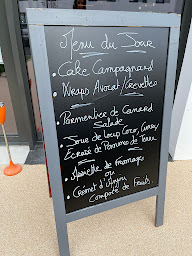 Menu du Jour
• Cake Campagnard
• Wraps Avocat/Crevettes
• Parmentier de Canard
Salade
• Joue de Loup Coco, Curry
Ecrasé de Pommes de Terre
• Assiette de Fromages
ou
• Crémet d'Anjou
Compotée de Fruits